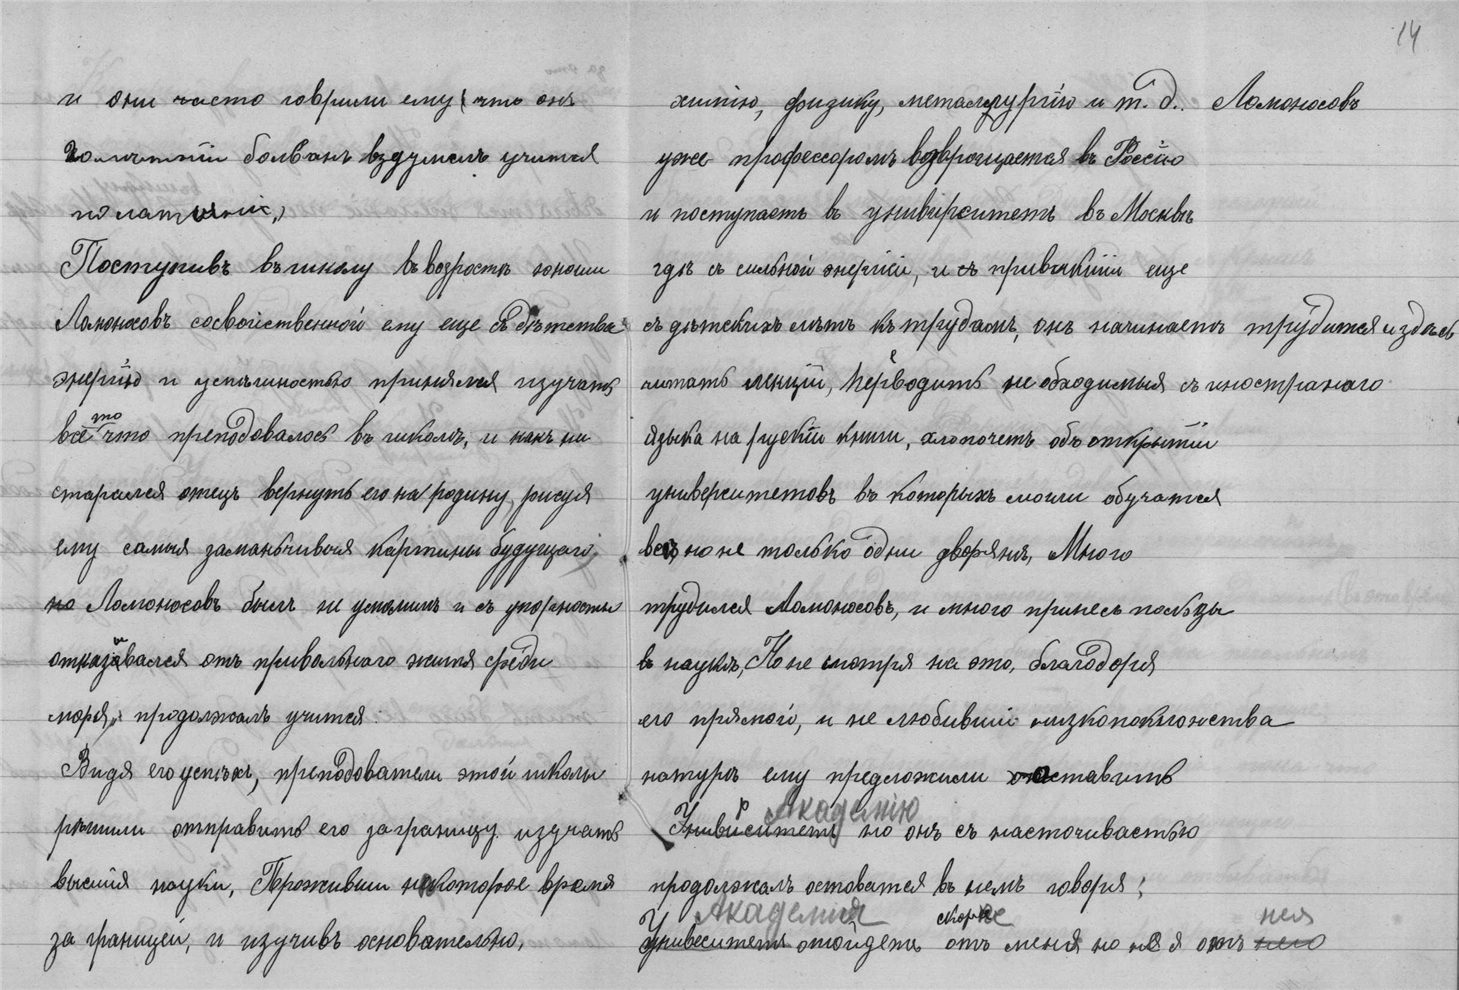 14
и они часто говрили ему, что онъ
20лиѣтній болванъ вздумалъ учится
по латыніи,
Поступивъ въ школу въ возрастѣ юноши
Ломоносовъ сосвойственной ему еще съ дѣтства
энергію и успѣшностью принялся изучать
все то что преподовалось въ школѣ, и какъ ни
старался отецъ вернуть его на родину, рисуя
ему самыя заманьчивыя картины будущаго,
но Ломоносовъ былъ не умолимъ и съ упорностью
отказывался отъ привольнаго житя среди
моря, и продолжалъ учится.
Видя его успѣхи, преподователи этой школы
рѣшили отправить его заграницу изучать
высшія науки, Проживши некоторое время
за границей, и изучивъ основательно,
химію, физику, металлургію и т. д. Ломоносовъ
уже профессоромъ возврощается въ Россію
и поступаетъ въ университетъ въ Москвѣ
гдѣ съ сильной энергіи, и съ привыкшій еще
съ дѣтскихъ лѣтъ къ трудамъ, онъ начинаетъ трудится и здѣсь
читать лекціи, переводить не обходимыя съ иностранаго
языка на рускій книги, хлопочетъ объ открытіи
университетовъ въ которыхъ могли обучатся
все, но не только одни дворяня, Много
трудился Ломоносовъ, и много принесъ пользы
въ наукѣ, Но не смотря на это, благодоря
его прямой, и не любивший низкопоклонства
натурѣ ему предложили оставить
Университетъ Академію но онъ съ насточивастью
продолжалъ оставатся въ немъ говоря:
Университетъ Академия отойдетъ скорее отъ меня но не я отъ него нея